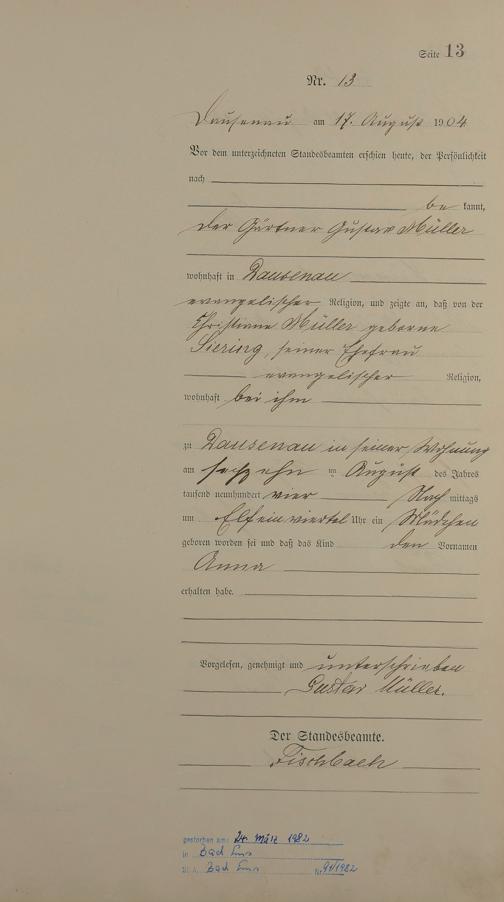 Seite 13
Nr. 13
Dausenau am 17. August 1904
Vor dem unterzeichneten Standesbeamten erschien heute, der Persönlichkeit
nach
be kannt,
der Gärtner Gustav Müller
wohnhaft in Dausenau
evangelischer Religion, und zeigte an, daß von der
Christiane Müller geborne
Siering, seiner Ehefrau
evangelischer Religion,
wohnhaft bei ihm
zu Dausenau in seiner Wohnung
am sechzehn im August des Jahres
tausend neunhundert vier Nach mittags
um Elf ein viertel Uhr ein Mädchen
geboren worden sei und daß das Kind den Vornamen
Anna
erhalten habe.
Vorgelesen, genehmigt und unterschrieben
Gustav Müller.
Der Standesbeamte.
Fischbach
gestorben am: 24. März 1982
in Bad Ems
St. A. Bad Ems Nr. 91/1982